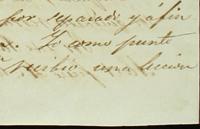 por separado y á fin
Lo como punto
recibio una leccion